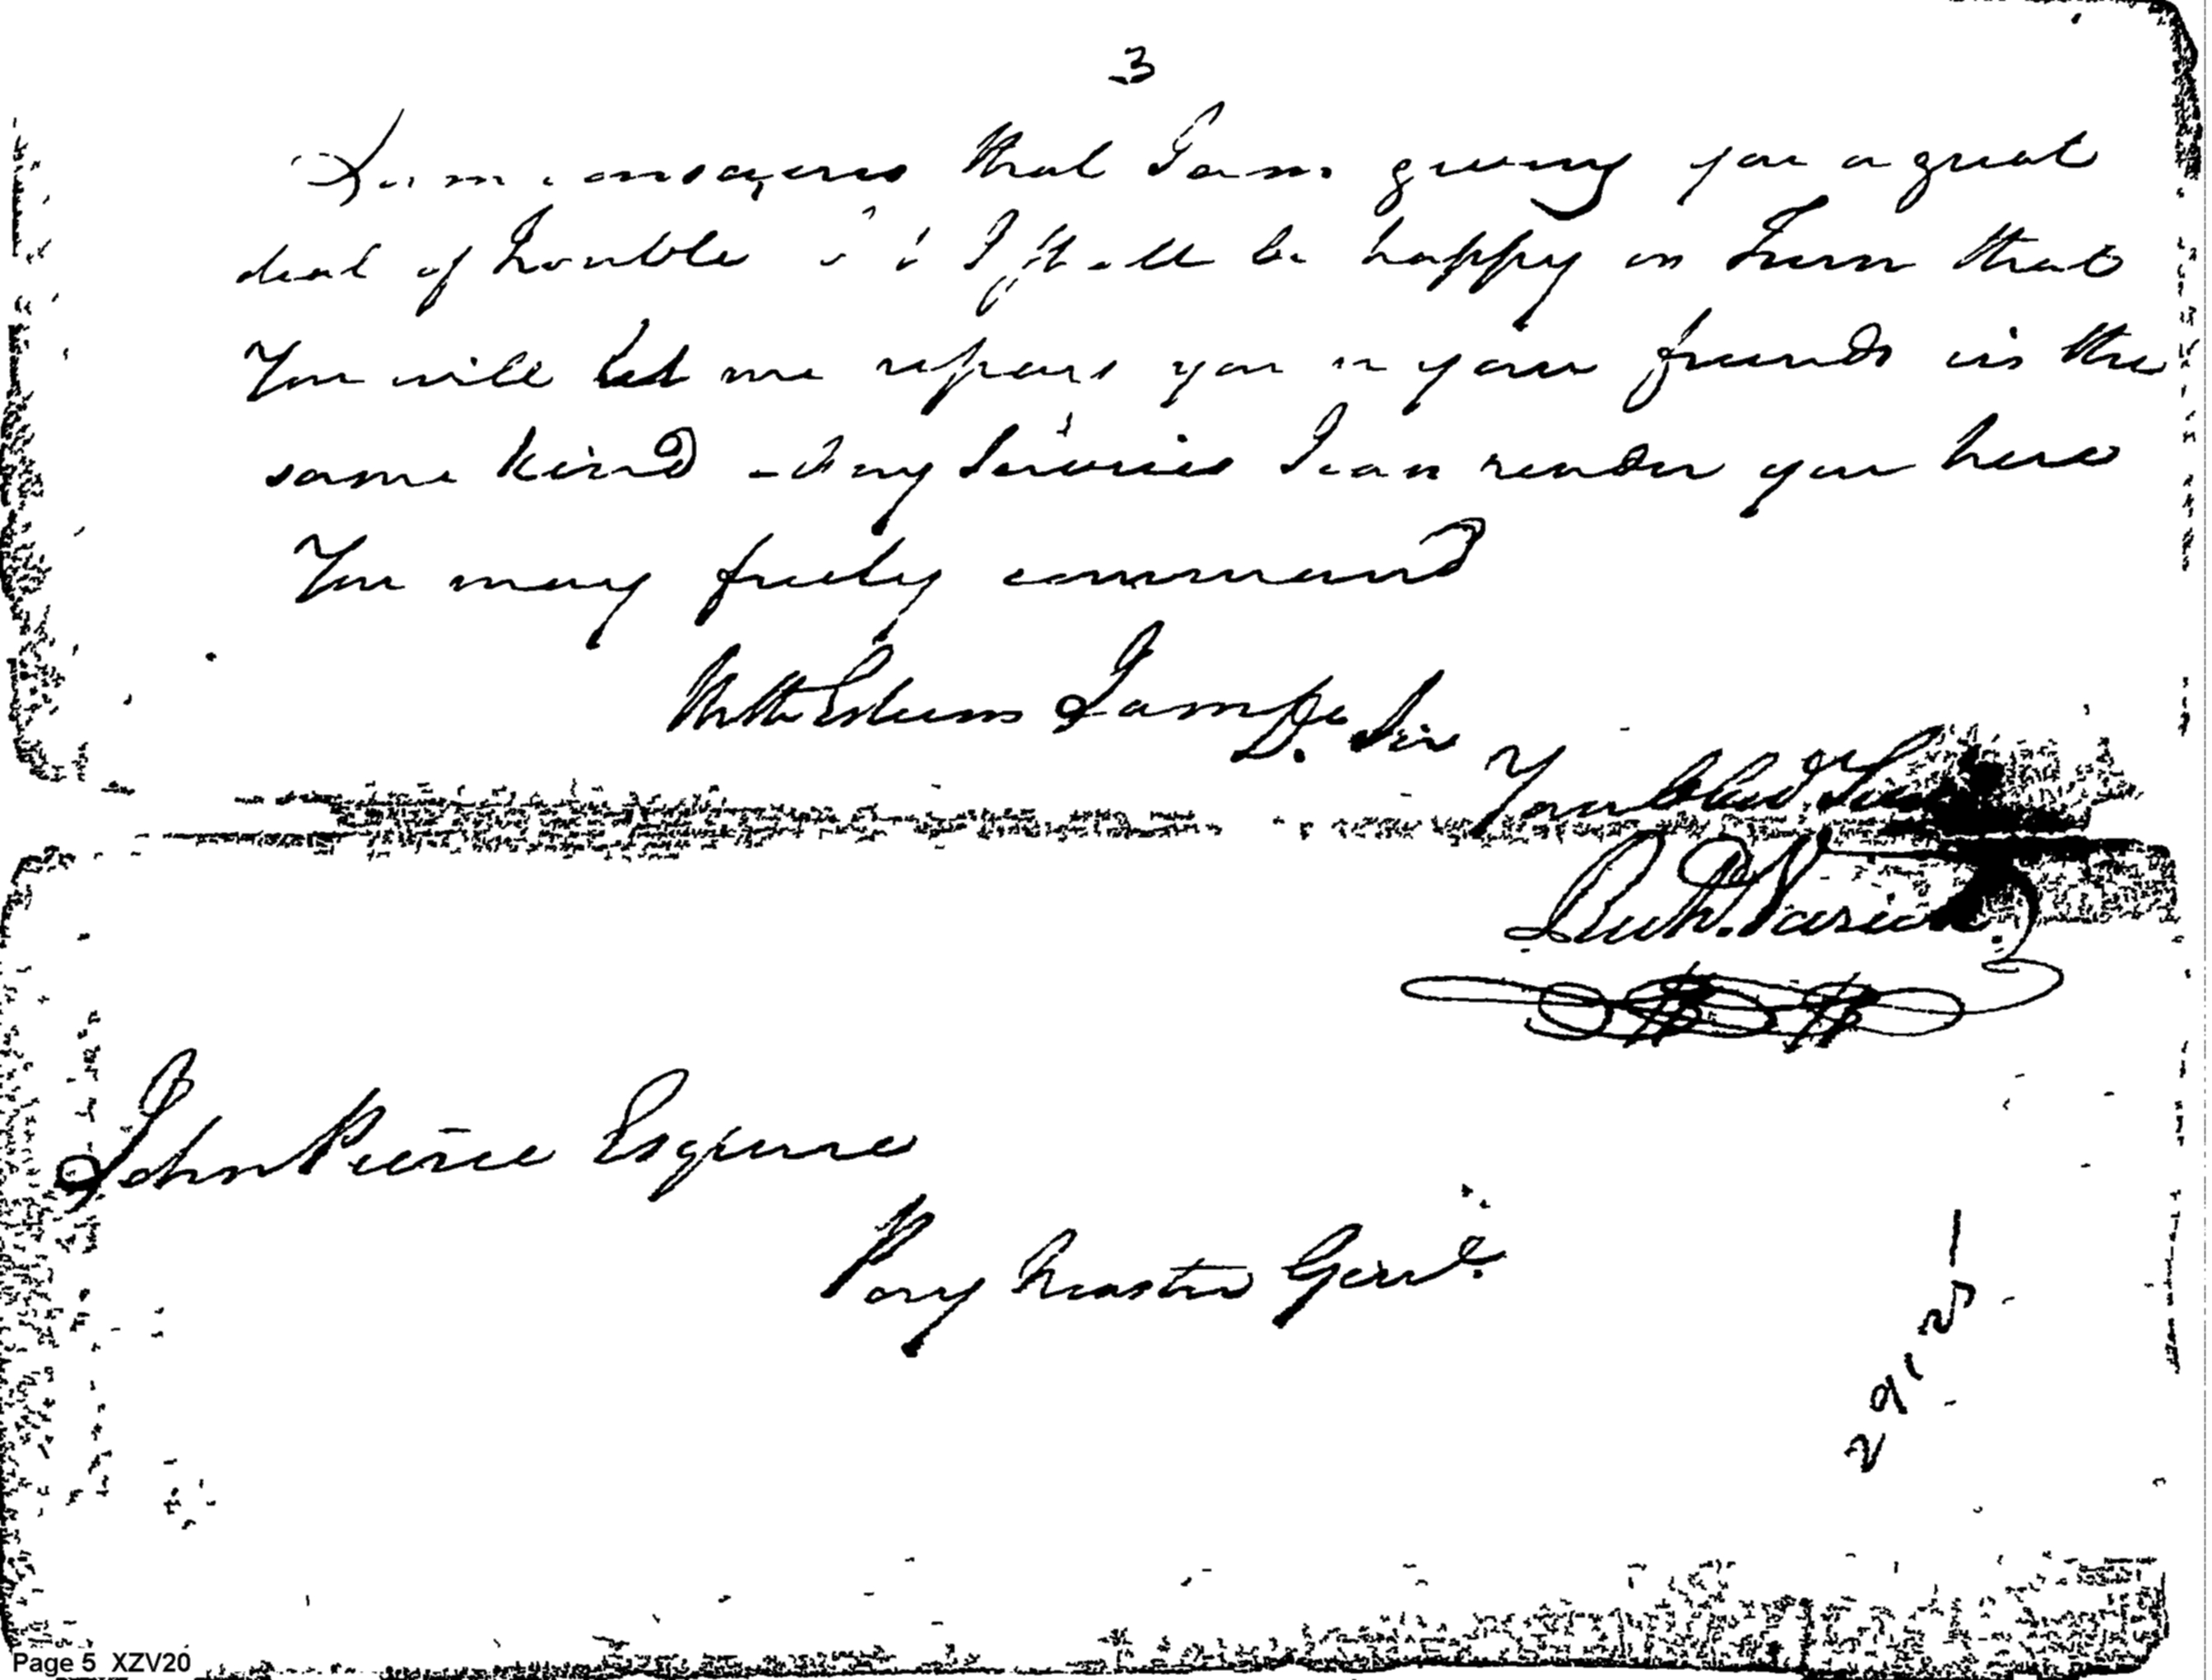 3
I am conscious that I am giving you a great
deal of trouble I shall be happy in Turn that
You will let me repay you or your friends in the
same kind - Any Services I can render you here
You may freely command
With Esteem I am
Dr. Sir
Your Obed Serv
Richd. Varick.
John Pierce Esquire
Pay Master Genl.
Page 5 XZV20